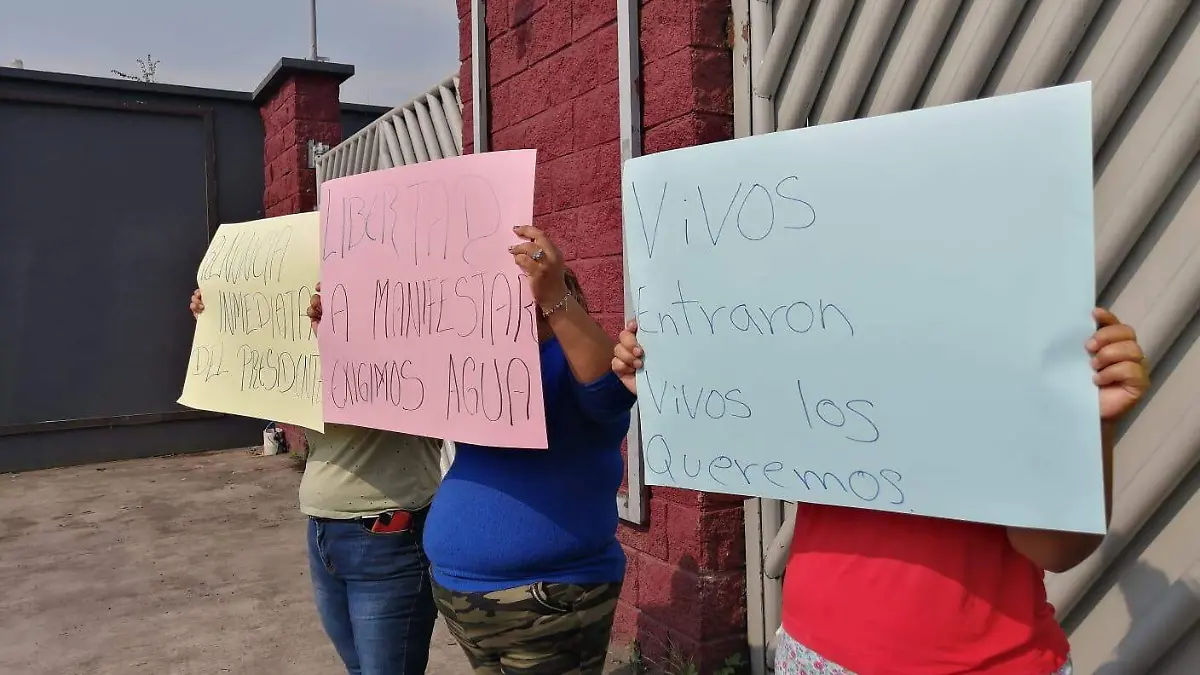 RENUNCIA
INMEDIATA
DEL PRESIDENTE
LIBERTAD
A MANIFESTAR
EXIGIMOS AGUA
Vivos
Entraron
Vivos los
Queremos